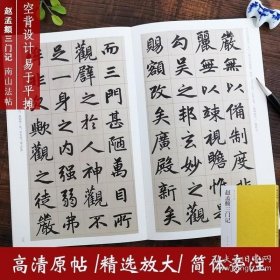 赵孟頫三门记
南山法帖
空背设计 易于平摊
嚴無以備制度
麗無以竦視瞻惟
勾吴之邦玄妙之觀
賜額改矣廣殿新矣
而三門甚陋萬目所
觀譬之於人神觀不
足一身之内强弱弗
歟觀之徒嚴
赵孟頫三门记
高清原帖/精选放大/简体旁注